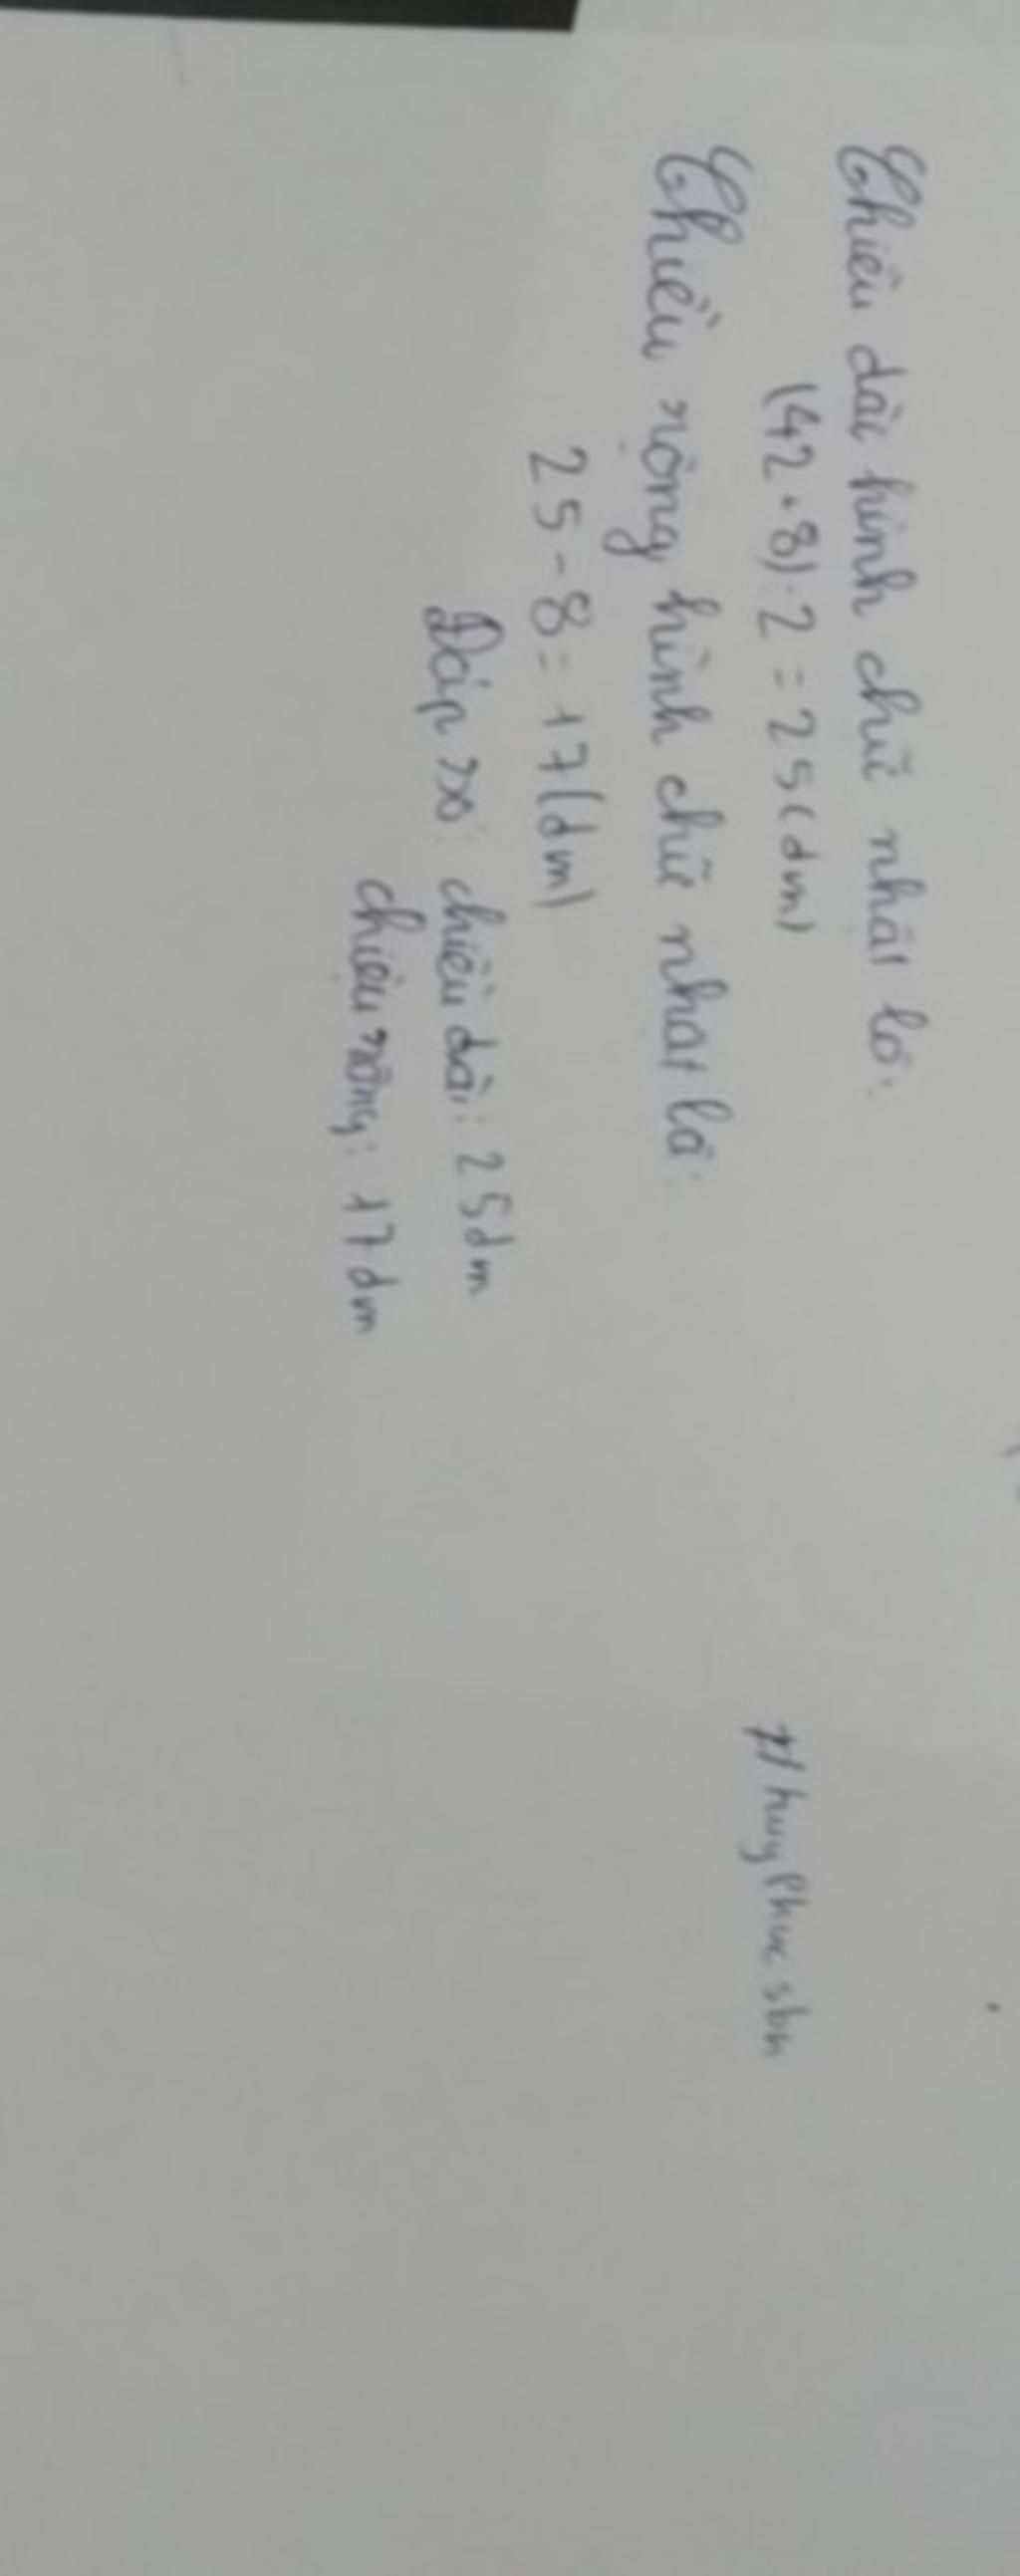 Chiều dài hình chữ nhật là:
(42+8):2=25(dm)
Chiều rộng hình chữ nhật là:
25-8=17(dm)
Đáp số: chiều dài: 25dm
chiều rộng: 17dm
huyPhuc